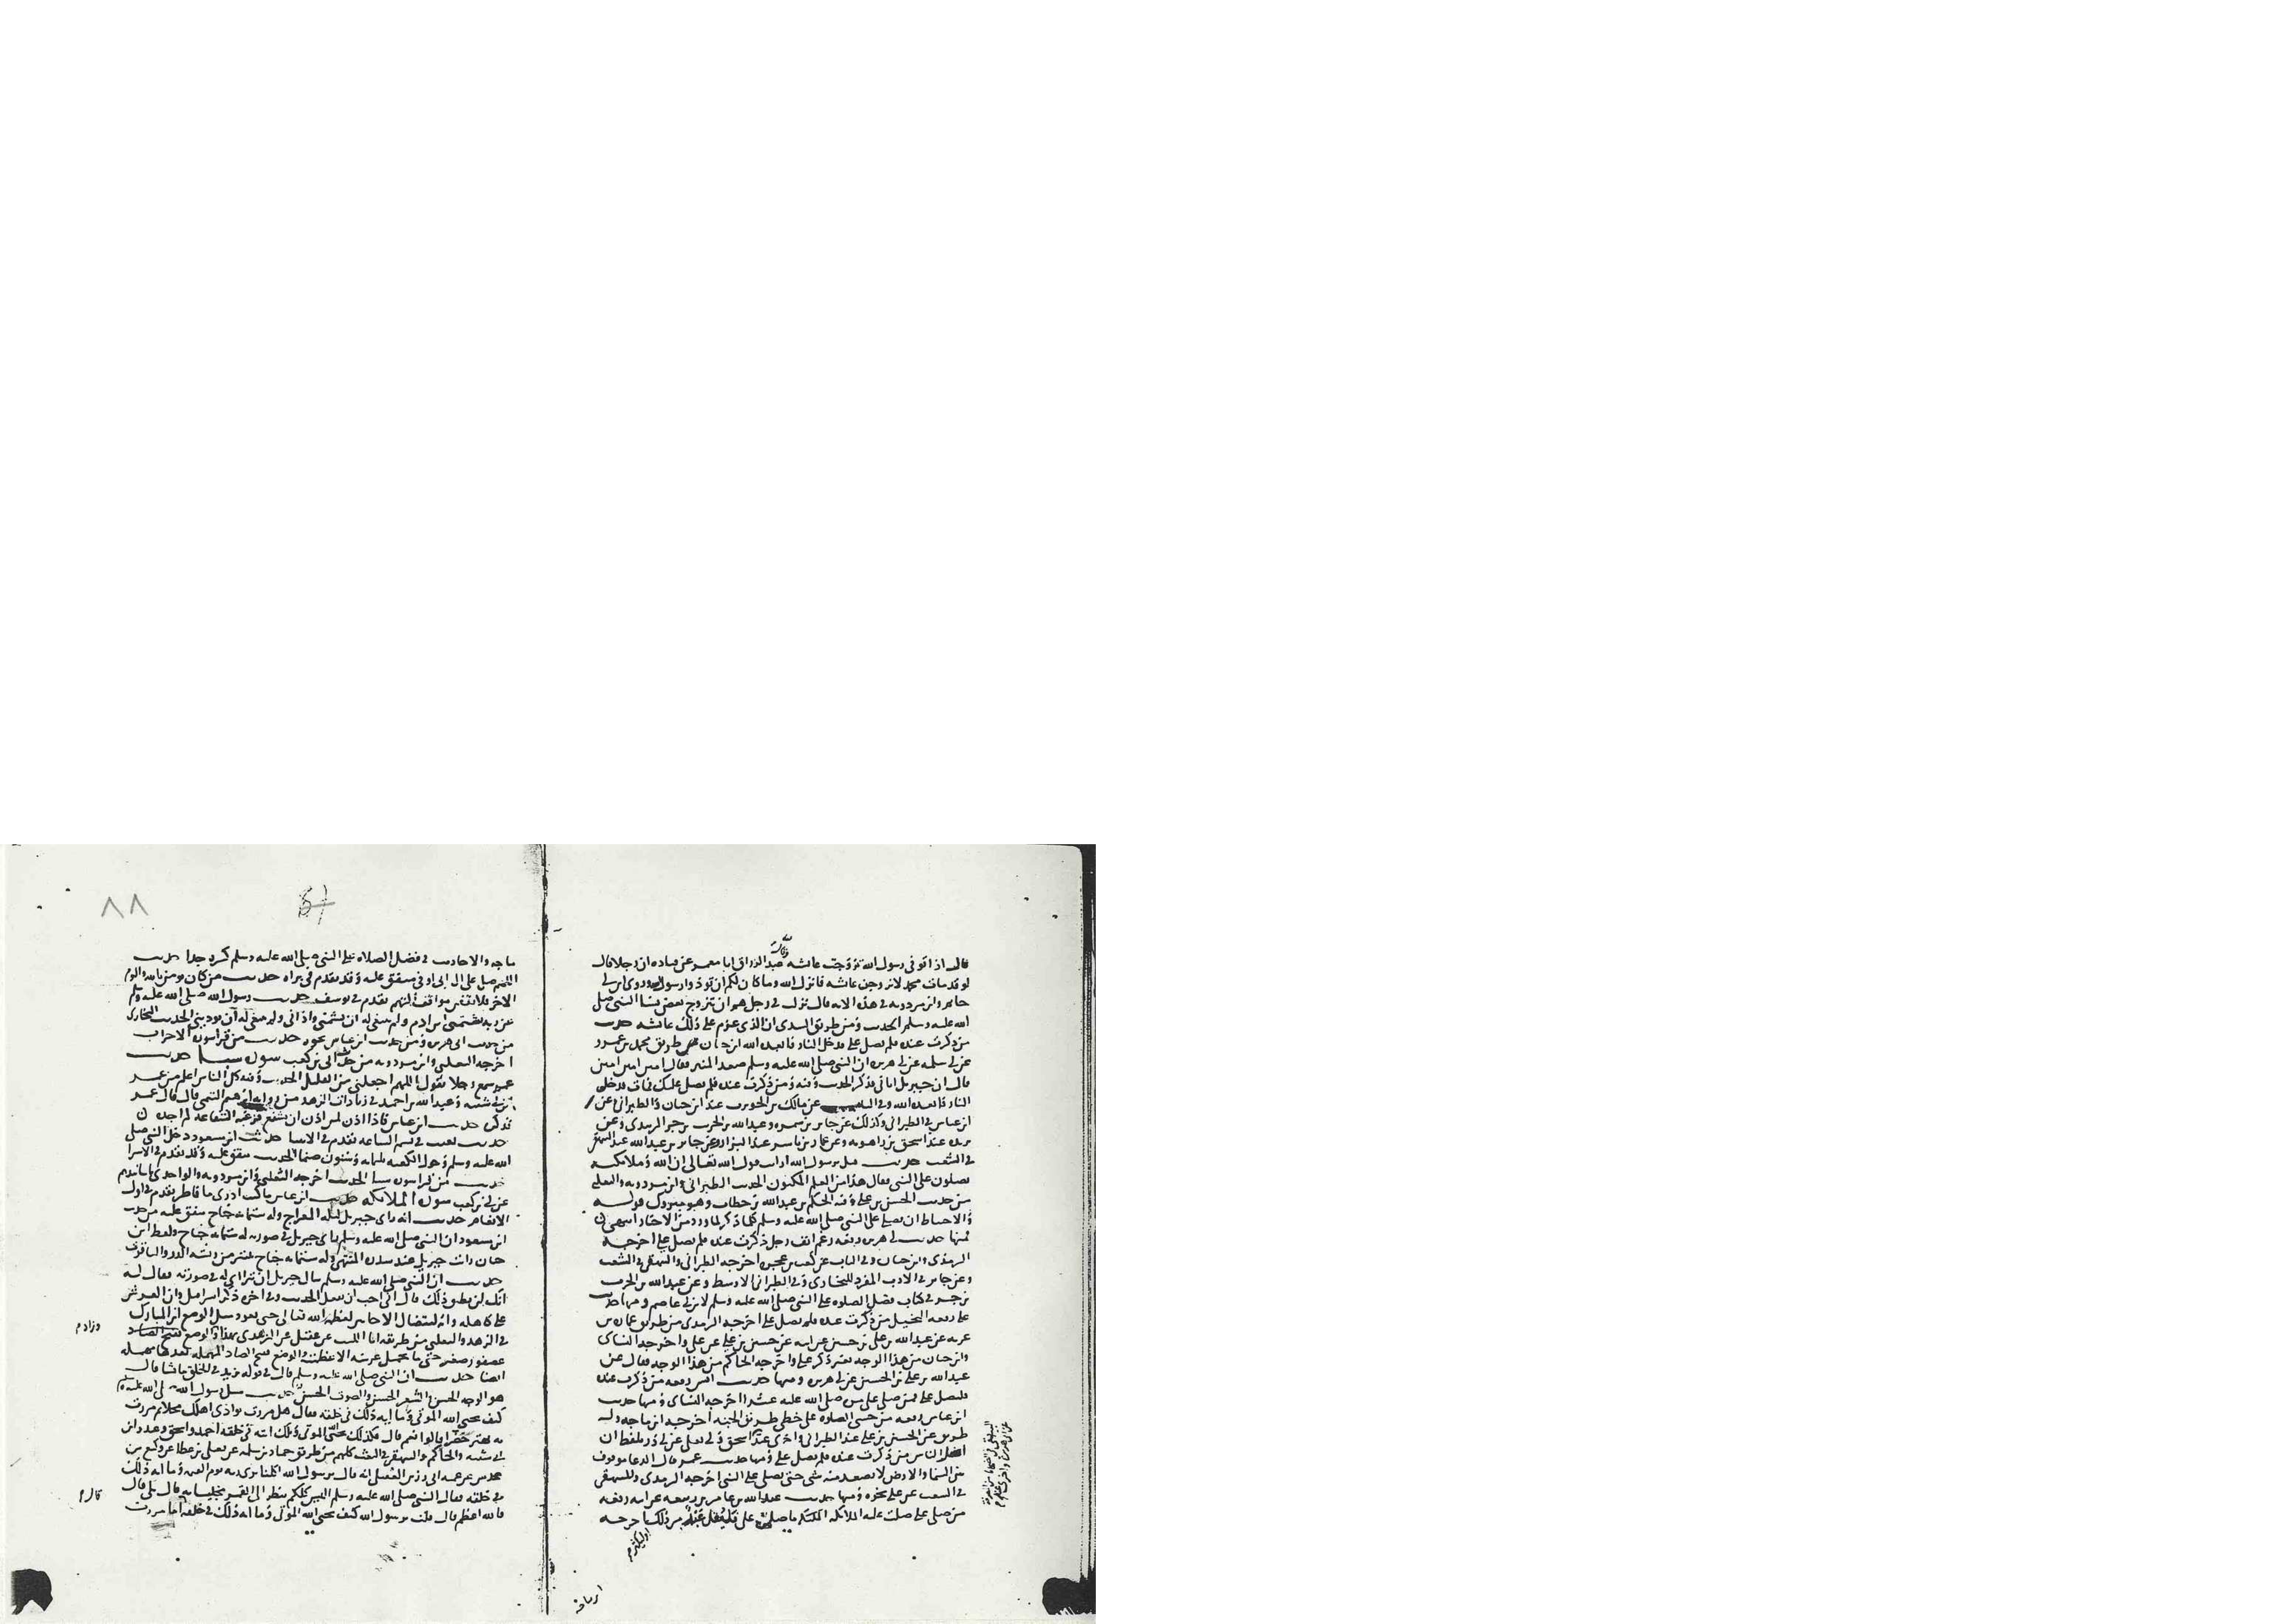 قال اذا توفى رسول الله تزوجت عائشة وقال عبد الرزاق انا معمر عن قتاده ان رجلا قال
لو قد مات محمد لاتزوجن عائشه فانزل الله وما كان لكم ان توذوا رسول الله وروى ابن ابي
حاتم وابن مردويه في هذه الايه قال نزلت في رجل هم ان يتزوج بعض نسا النبي صلى
الله عليه وسلم الحديث ومن طريق السدي ان الذي عزم على ذلك حديث
من ذكرت عنده فلم يصل علي فدخل النار فابعده الله ابن حبان من طريق محمد بن عمرو
عن ابي سلمه عن ابي هريره ان النبي صلى الله عليه وسلم صعد المنبر فقال امين امين امين
قال ان جبريل اتاني فذكر الحديث وفيه ومن ذكرت عنده فلم يصل عليك فمات فدخل
النار فابعده الله وفي الباب عن مالك بن الحويرث عند ابن حبان والطبراني وعن
ابن عباس في الطبراني وكذلك عن جابر بن سمره وعبد الله بن الحرث بن جزء الزبيدي وعن
بريده عند اسحق بن راهويه وعن عمار بن ياسر عند البزار وعن جابر بن عبد الله عند البيهقي
في الشعب حديث قيل يرسول الله ارايت قول الله تعالى ان الله وملائكته
يصلون على النبي فقال هذا من العلم المكنون الحديث الطبراني وابن مردويه والثعلبي
من حديث الحسن بن علي وفيه الحكم بن عبد الله بن خطاف وهو متروك قوله
والاحتياط ان يصلي على النبي صلى الله عليه وسلم كلما ذكر لما ورد من الاخبار انتهى
فمنها حديث ابي هريره رفعه رغم انف رجل ذكرت عنده فلم يصل علي اخرجه
الترمذي وابن حبان وفي الباب عن كعب بن عجره اخرجه الطبراني والبيهقي في الشعب
وعن جابر في الادب المفرد للبخاري وفي الطبراني الاوسط وعن عبد الله بن الحرث
بن جزء في كتاب فضل الصلوه على النبي صلى الله عليه وسلم لابن ابي عاصم ومنها حديث
علي رفعه البخيل من ذكرت عنده فلم يصل علي اخرجه الترمذي من طريق عماره بن
غزيه عن عبد الله بن علي بن حسين عن ابيه عن حسين بن علي عن علي واخرجه النساي
وابن حبان من هذا الوجه بغير ذكر علي واخرجه الحاكم من هذا الوجه فقال عن
عبد الله بن علي بن الحسين عن ابي هريره ومنها حديث انس رفعه من ذكرت عنده
فليصل علي فمن صلى علي مره صلى الله عليه عشرا اخرجه النساي ومنها حديث
ابن عباس رفعه من نسي الصلاه علي خطئ طريق الجنه اخرجه ابن ماجه وله
طريق عن الحسين بن علي عند الطبراني واخرى عند اسحق وابي يعلى عن ابي ذر بلفظ ان
ابخل الناس من ذكرت عنده فلم يصل علي ومنها حديث عمر قال الدعا موقوف
بين السما والارض لا يصعد منه شي حتى يصلى على النبي اخرجه الترمذي وللبيهقي
في الشعب عن علي نحوه ومنها حديث عبد الله بن عامر بن ربيعه عن ابيه رفعه
من صلى علي صلت عليه الملائكه ما صلى علي فليقل عبد من ذلك او ليكثر اخرجه
ابن ماجه
٨٨
ماجه والاحاديث في فضل الصلاه على النبي صلى الله عليه وسلم كثيره جدا حديث
اللهم صل على ال ابي اوفى متفق عليه وقد تقدم في براه حديث من كان يومن بالله واليوم
الاخر فلا يقفن مواقف التهم تقدم في يوسف حديث رسول الله صلى الله عليه وسلم
عن ربه شتمني ابن ادم ولم ينبغي له ان يشتمني واذاني ولم ينبغي له ان يوذيني الحديث البخاري
من حديث ابي هريره ومن حديث ابن عباس نحوه حديث من قرا سورة الاحزاب
اخرجه الثعلبي وابن مردويه من حديث ابي بن كعب سورة سبا حديث
عمر سمع رجلا يقول اللهم اجعلني من القليل الحديث وفيه كل الناس اعلم من عمر
ابن ابي شيبه وعبد الله بن احمد في زيادات الزهد من روايه ابراهيم التيمي قال قال عمر
فذكره حديث ابن عباس فاذا اذن لمن اذن ان يشفع فزعته الشفاعه لم اجده
حديث بعثت في نسم الساعه تقدم في الانبيا حديث ابن مسعود دخل النبي صلى
الله عليه وسلم وحول الكعبه ثلثمايه وستون صنما الحديث متفق عليه وقد تقدم في الاسرا
حديث من قرا سورة سبا الحديث اخرجه الثعلبي وابن مردويه والواحدي باسانيدهم
عن ابي بن كعب سورة الملائكه حديث ابن عباس ما كنت ادري ما فاطر تقدم في اول
الانعام حديث انه راى جبريل ليلة المعراج وله ستمايه جناح متفق عليه من حديث
ابن مسعود ان النبي صلى الله عليه وسلم راى جبريل في صورته له ستمايه جناح ولفظ ابن
حبان رايت جبريل عند سدرة المنتهى وله ستمايه جناح ينتثر من ريشه الدر والياقوت
حديث ان النبي صلى الله عليه وسلم سال جبريل ان يتراى له في صورته فقال له
انك لن تطيق ذلك قال اني احب ان تفعل الحديث وفي اخره ذكر اسرافيل وان العرش
على كاهله وانه ليتضال الاحايين لعظمة الله تعالى حتى يعود مثل الوصع ابن المبارك
في الزهد والثعلبي من طريقه انا الليث عن عقيل عن الزهري بهذا وزاد والوصع
عصفور صغير حتى ما يحمل عرشه الا عظمته والوصع بفتح الصاد المهمله بعدها مهمله
ايضا حديث ان النبي صلى الله عليه وسلم قال في قوله يزيد في الخلق ما يشا قال
هو الوجه الحسن والشعر الحسن والصوت الحسن حديث سئل رسول الله صلى الله عليه وسلم
كيف يحيي الله الموتى وما ايه ذلك في خلقه فقال هل مررت بوادي اهلك محلا ثم مررت
به يهتز خضرا قالوا نعم قال فكذلك يحيي الموتى وتلك ايته في خلقه احمد واسحق وابن
ابي شيبه والحاكم والبيهقي في البعث كلهم من طريق حماد بن سلمه عن يعلى بن عطا عن وكيع بن
عدس عن عمه ابي رزين العقيلي انه قال يرسول الله اكلنا يرى ربه يوم القيمه وما ايه ذلك
في خلقه فقال النبي صلى الله عليه وسلم اليس كلكم ينظر الى القمر مخليا به قال بلى قال
فالله اعظم قال قلت يرسول الله كيف يحيي الله الموتى وما ايه ذلك في خلقه قال اما مررت